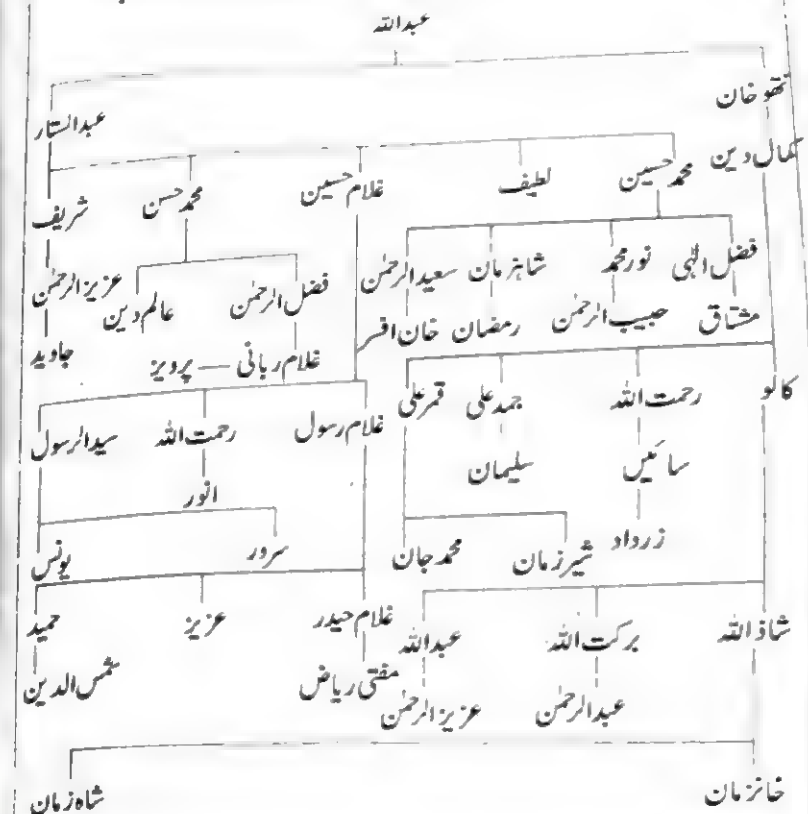 عبداللہ
نتھو خان
عبدالستار
کمال دین
محمد حسین لطیف غلام حسین محمد حسن شریف
فضل الٰہی نور محمد شاہزمان سعید الرحمٰن فضل الرحمٰن عالم دین عزیز الرحمٰن
مشتاق حبیب الرحمٰن رمضان خان افسر غلام ربانی — پرویز جاوید
کالو رحمت اللہ جمد علی قمر علی غلام رسول رحمت اللہ سید الرسول
سائیں سلیمان انور
زرداد شیر زمان محمد جان سرور یونس
شاذ اللہ برکت اللہ عبداللہ غلام حیدر عزیز حمید
عبدالرحمٰن عزیز الرحمٰن مفتی ریاض شمس الدین
خانزمان شاہ زمان